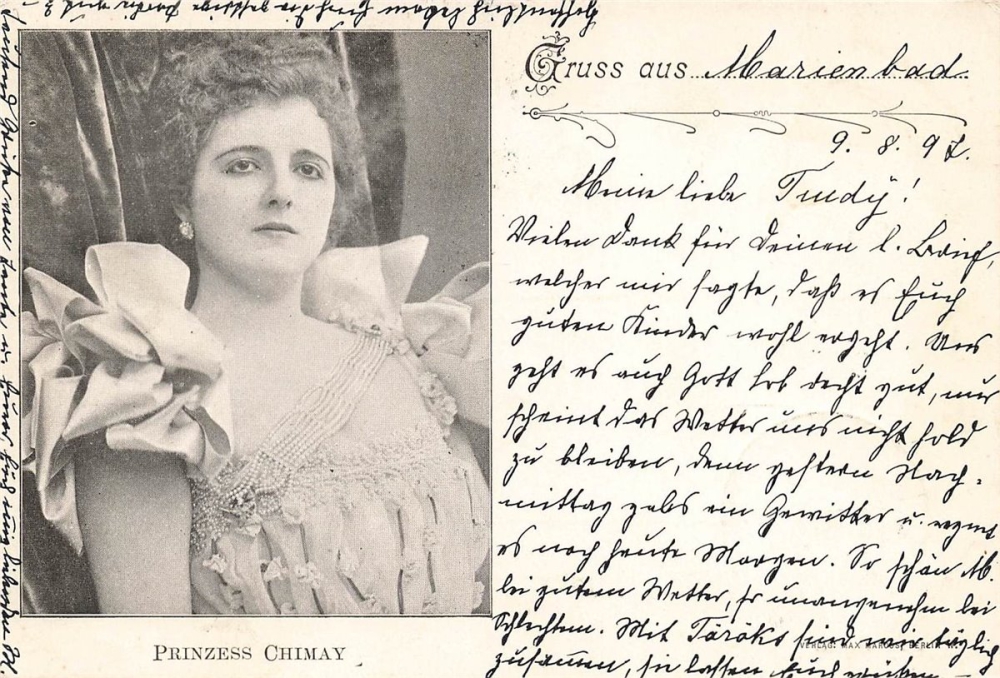 Gruss aus Marienbad.
9. 8. 97.
Meine liebe Trudy!
Vielen Dank für Deinen l. Brief,
welcher mir sagte, daß es Euch
guten Kinder wohl ergeht. Uns
geht es auch Gott lob recht gut, nur
scheint das Wetter uns nicht hold
zu bleiben, denn gestern Nach-
mittag gabs ein Gewitter u. regnet
es noch heute Morgen. So schön M.
bei gutem Wetter, so unangenehm bei
Schlechtem. Mit Töröks sind wir täglich
zusammen, sie lassen Euch grüßen
VERLAG: MAX MARCUS, BERLIN
PRINZESS CHIMAY